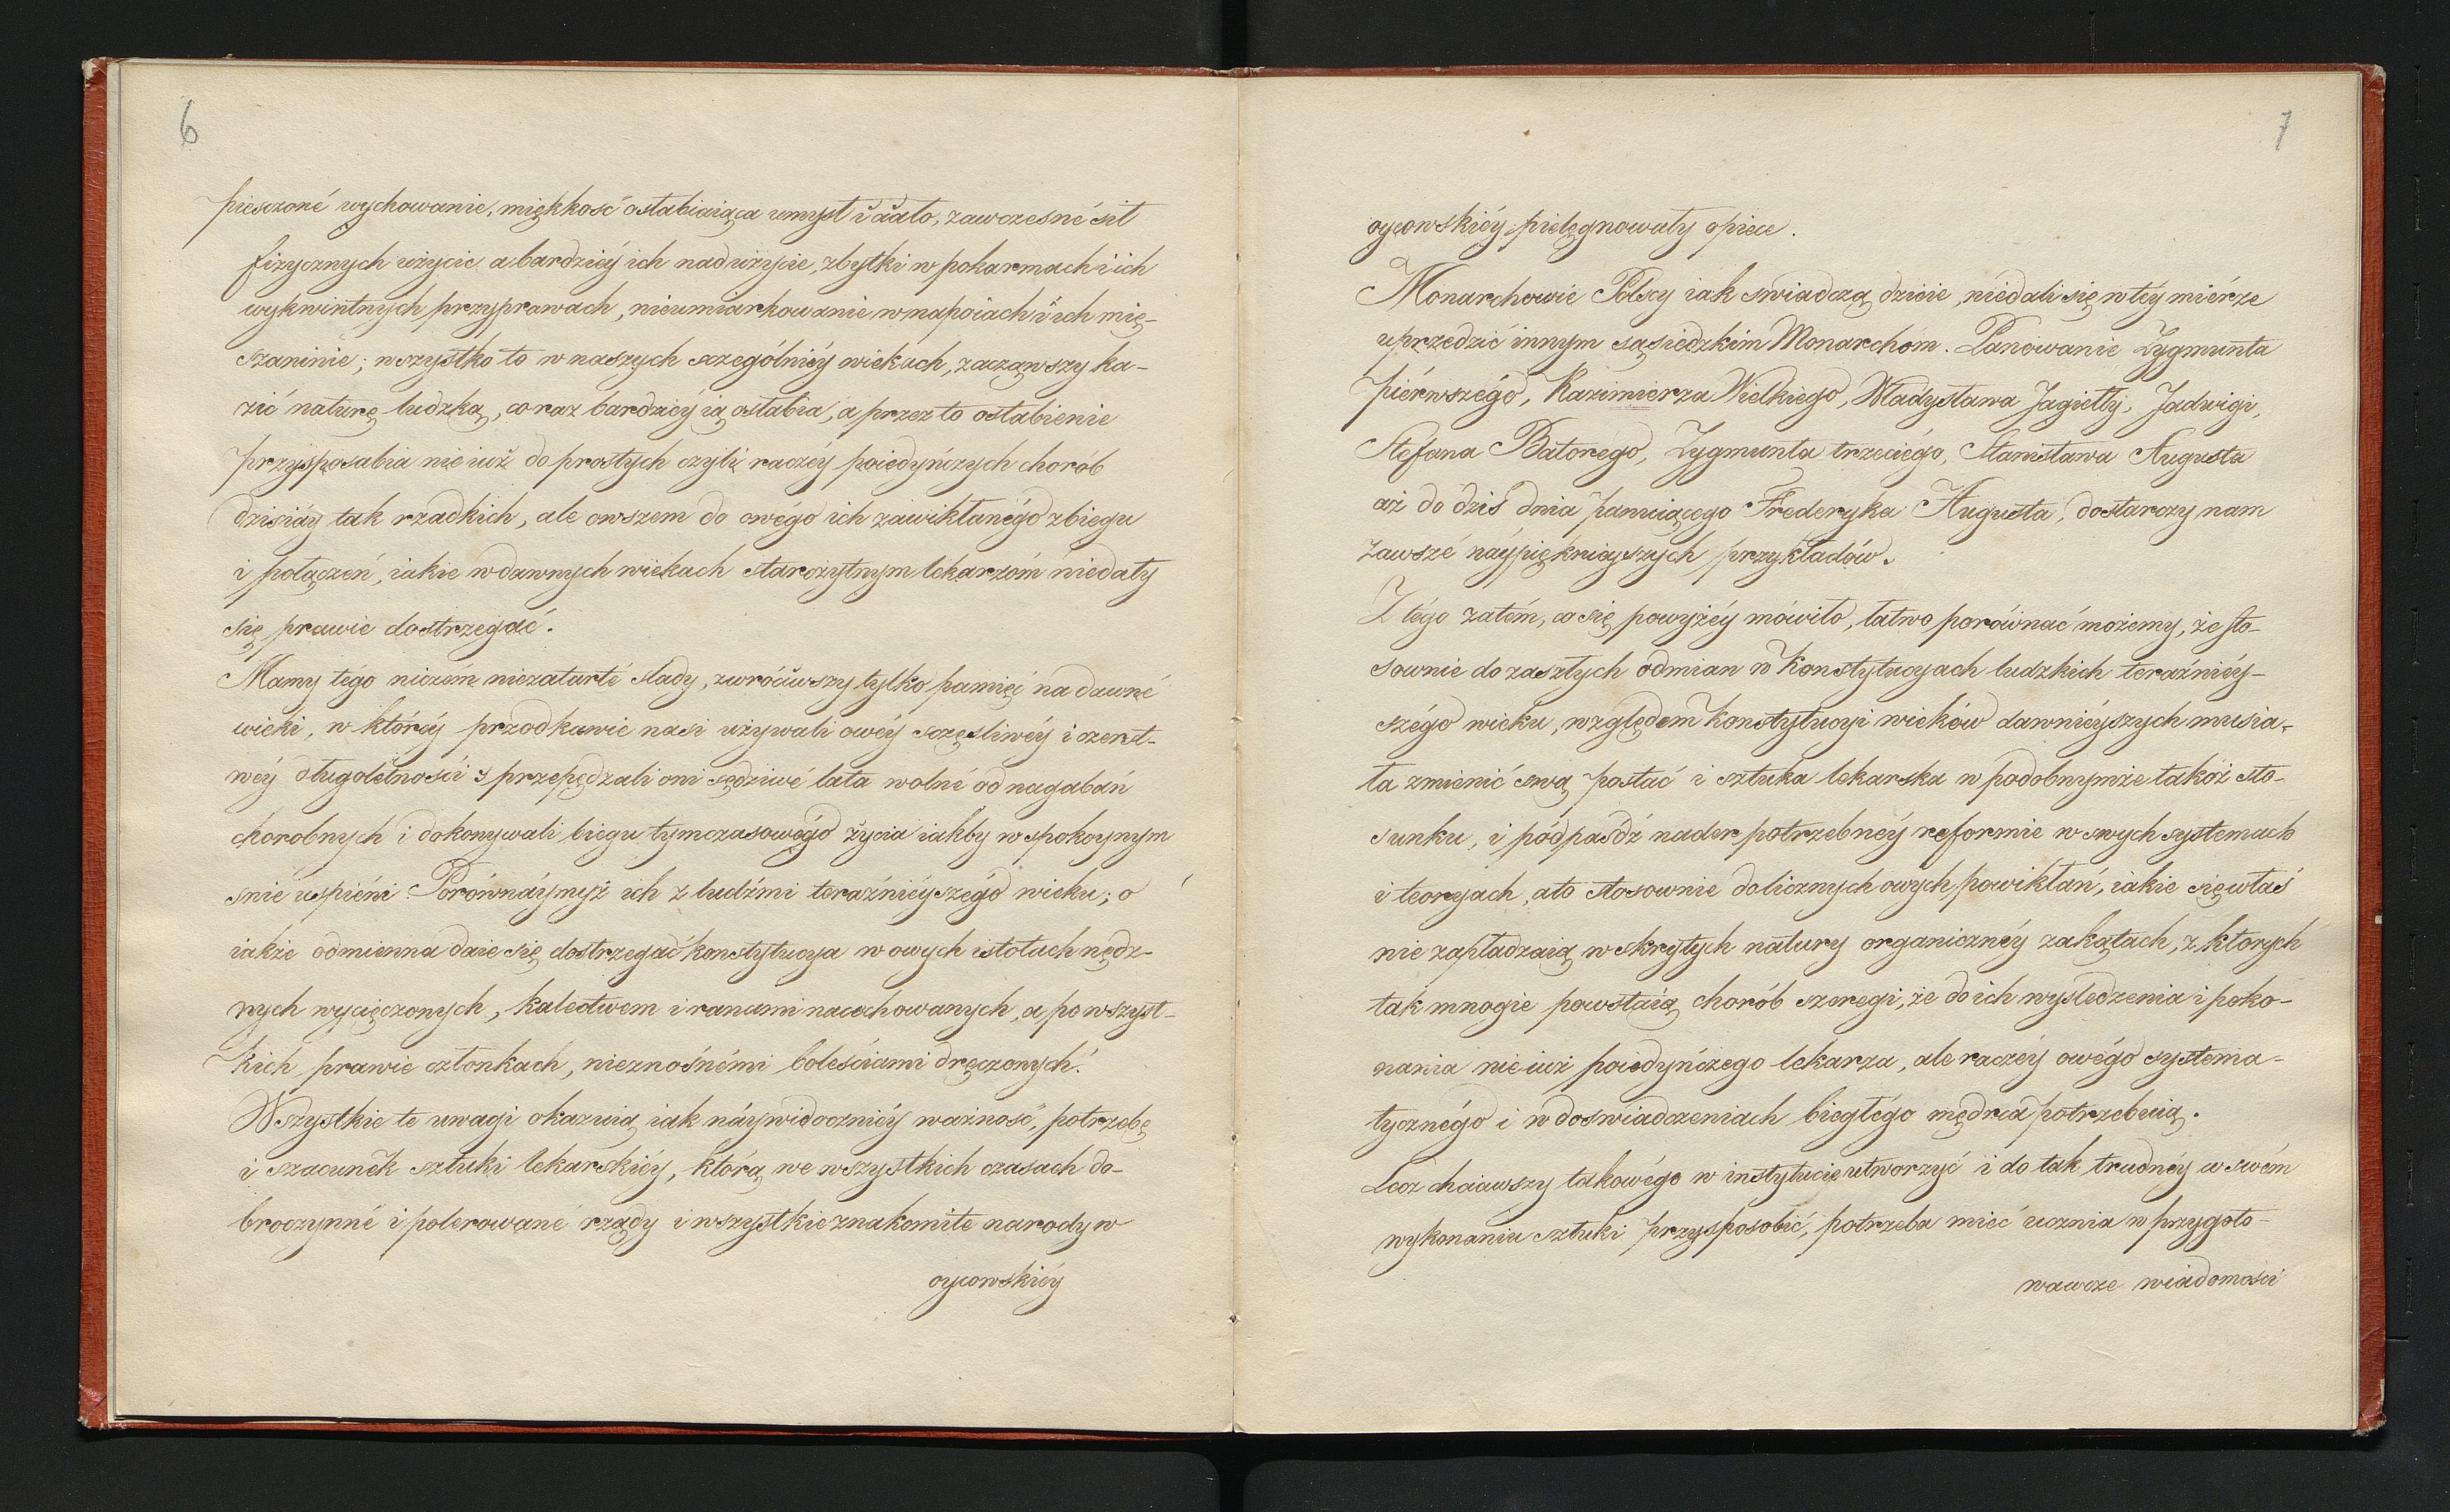 6
pieszczoné wychowanie, miękkość osłabiaiąca umysł i ciało, zawczesné sił
fizycznych użycie a bardziéy ich nadużycie, zbytki w pokarmach i ich
wykwintnych przyprawach, nieumiarkowanie w napoiach i ich mię-
szaninie; wszystko to w naszych szczególniéy wiekach, zacząwszy ka-
zić naturę ludzką, coraz bardziéy ią osłabia, a przez to osłabienie
przysposabia nie iuż do prostych czyli raczéy poiedyńczych chorób
dzisiáy tak rzadkich, ale owszem do owégo ich zawikłanégo zbiegu
i połączeń, iakie w dawnych wiekach starożytnym lekarzóm niedały
się prawie dostrzegać.
Mamy tégo niczém niezatarté slady, zwróciwszy tylko pamięć na dawné
wieki, w któréy przodkowie nasi używali owéy szczęsliwéy i czerst-
wéy długoletności s przepędzali oni sędziwé lata wolné od nagabań
chorobnych i dokonywali biegu tymczasowégo życia iakby w spokoynym
snie uspieni. Porównáymyż ich z ludźmi teraźniéyszégo wieku; o
iakże odmienna daie się dostrzegać konstytucya w owych istotach nędz-
nych wycięczonych, kalectwem i ranami nacechowanych, a po wszyst-
kich prawie członkach, nieznośnémi boleściami dręczonych!
Wszystkie te uwagi okazuią iak náywidoczniéy ważność, potrzebę
i szacunek sztuki lekarskiéy, którą we wszystkich czasach do-
broczynné i polerowané rządy i wszystkie znakomite narody w
oycowskiéy
7
oycowskiéy pielęgnowały opiece.
Monarchowie Polscy iak swiadczą dzieie, niedali się w téy miérze
uprzedzić innym sąsiedzkim Monarchom. Panowanie Zygmunta
piérwszégo, Kazimierza Wielkiégo, Władysława Jagiełły, Jadwigi,
Stefana Batorégo, Zygmunta trzeciégo, Stanisława Augusta
aż do dziś dnia panuiącego Frederyka Augusta, dostarczy nam
zawszé náypiękniéyszych przykładów.
Z tégo zatém, co się powyżéy mówiło, łatwo porównać możemy, że sto-
sownie do zaszłych odmian w konstytucyach ludzkich teraźniéy-
szégo wieku, względem konstytucyi wieków dawniéyszych musia-
ła zmienić swą postać i sztuka lekarska w podobnymże takóż sto-
sunku, i pódpaśdź nader potrzebnéy reformie w swych systemach
i teoryach, a to stosownie do licznych owych powikłań, iakie się właś
nie zapładzaią w skrytych natury organicznéy zakątach, z których
tak mnogie powstaią chorób szeregi, że do ich wysledzenia i poko-
nania nie iuż poiedyńczego lekarza, ale raczéy owégo systema-
tycznégo i w doswiadczeniach biegłégo mędrca potrzebuią.
Lecz chciawszy takowégo w instytucie utworzyć i do tak trudnéy w swém
wykonaniu sztuki przysposobić, potrzeba mieć ucznia w przygoto-
wawcze wiadomości